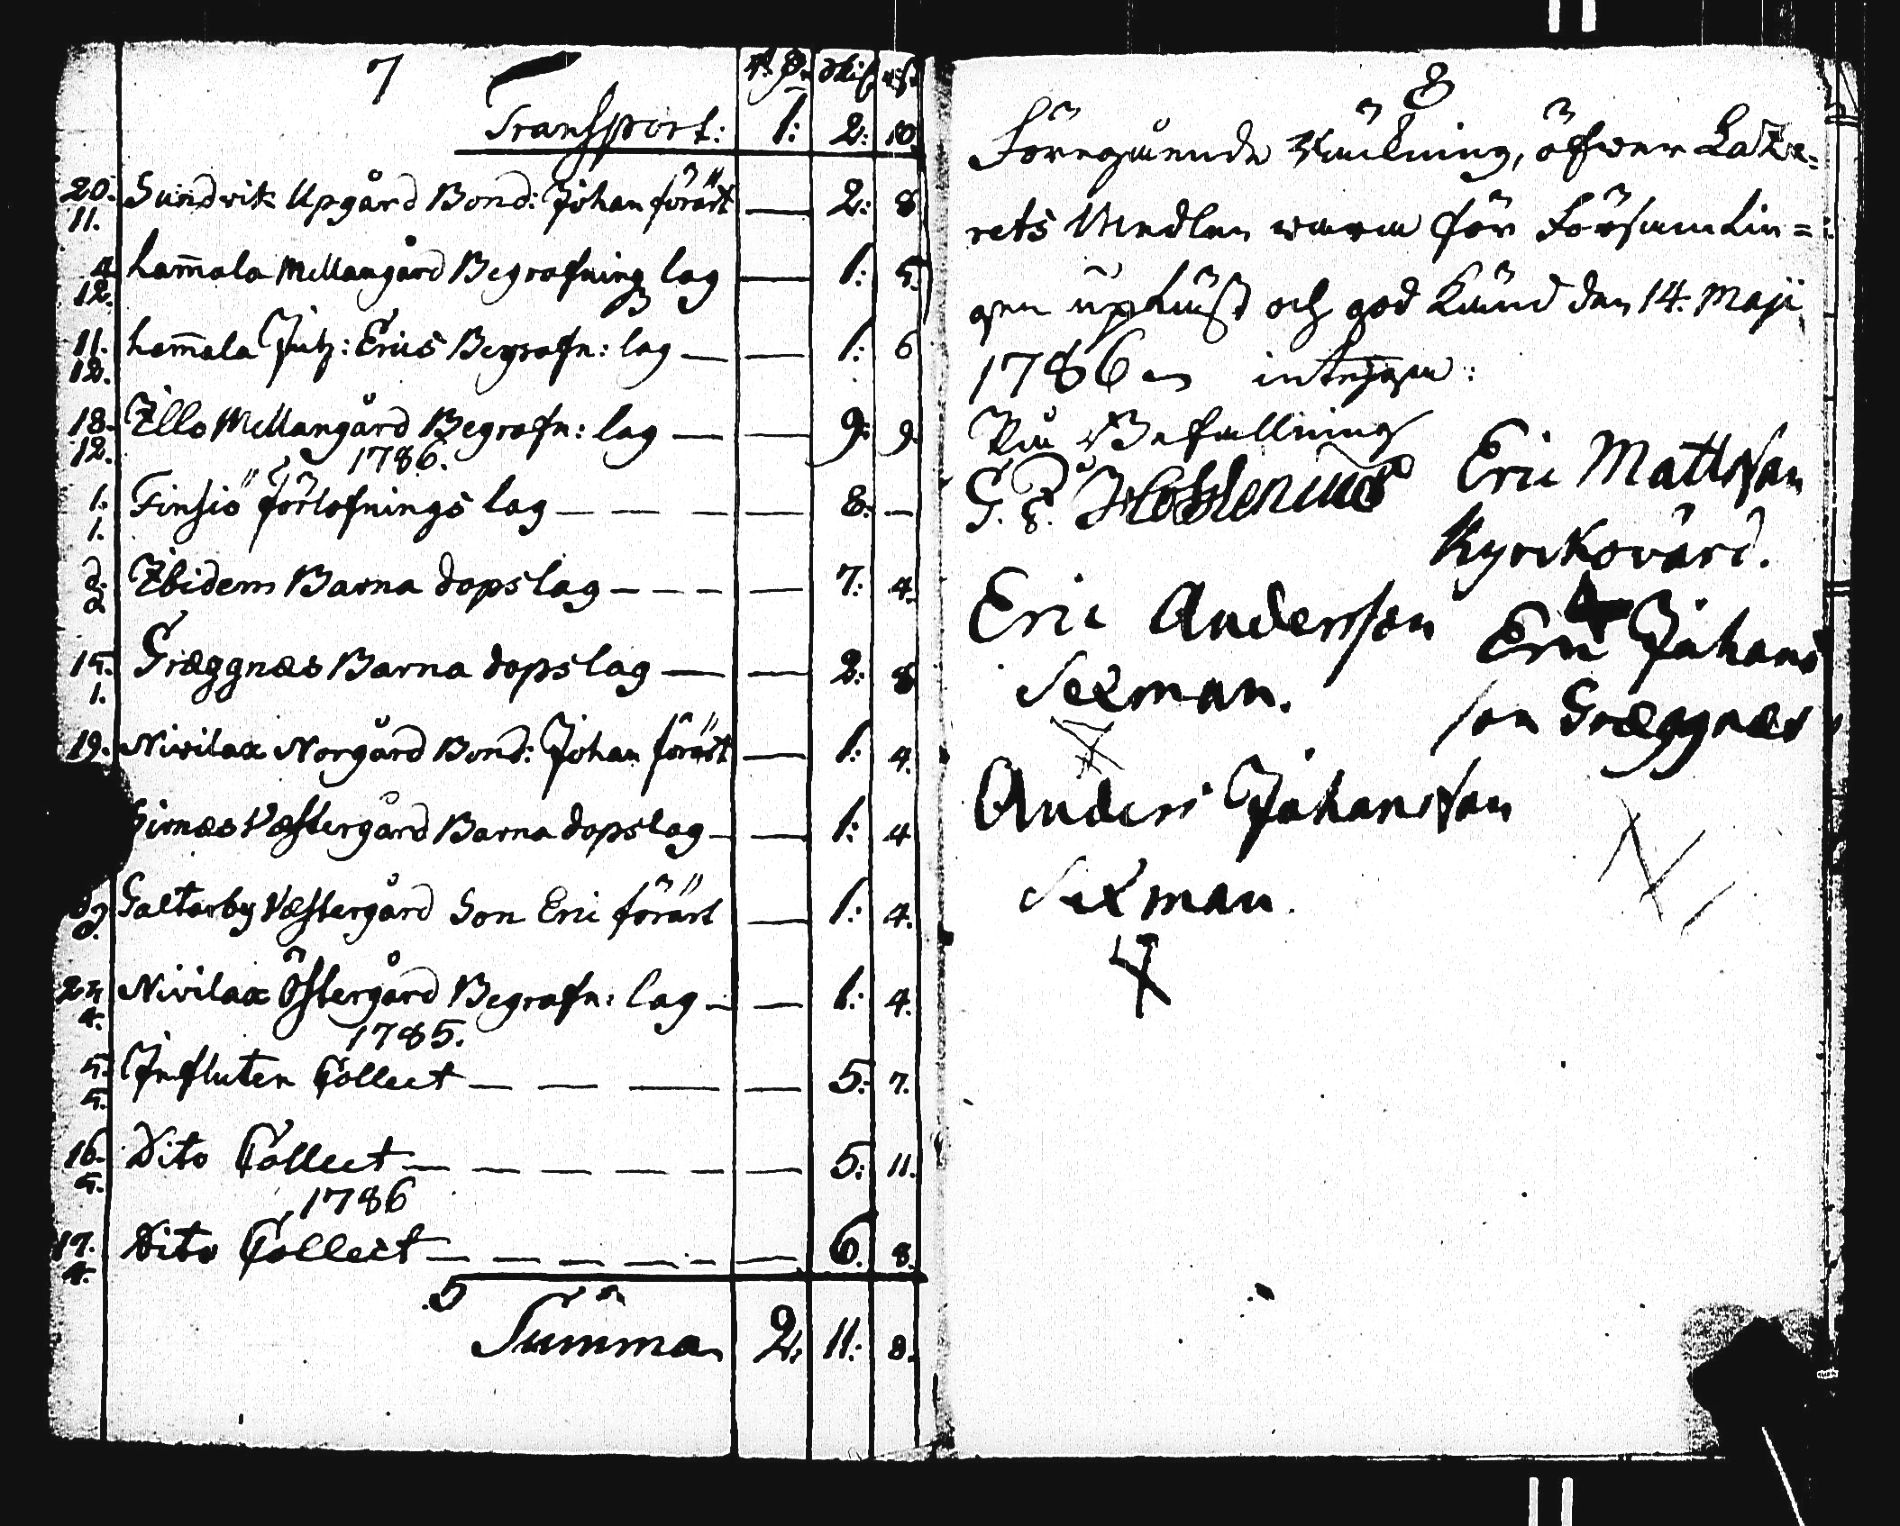 7
R:D. skil. rst
Transport: 1: 2: 10.
20. 11. Sundvik Upgård Bond: Johan förärt — 2: 8
4. 12. Lam̄ala Mellangård Begrafning lag — 1: 5.
11. 12. Lam̄ala Jutz: Erics Begrafn: lag — — 1: 6
18. 12. Illo Mellangård Begrafn: lag — — 9: 9.
1786.
1. 1. Finsiö förlofnings lag — — — — 8: —
d: d Ibidem Barna dopslag — — — — 7: 4.
15. 1. Græggnæs Barna dopslag — — 2: 8
19. Nivilax Norgård Bond: Johan förärt — 1: 4.
Girnæs Væstergård Barna dopslag — — 1: 4
Galtarby Væstergård Son Eric förärt — 1: 4.
24 4. Nivilax Östergård Begrafn: lag — — 1: 4.
1785.
5. 5. Influten Collect — — — — 5: 7.
16. 5. Dito Collect — — — — — — 5: 11.
1786
17. 4. Dito Collect — — — — — — 6. 8.
Summa 2. 11: 8.
8
Föregående Räkning, öfwer Laza=
rets Medlen warda för Församlin=
gen upläst och god känd den 14. Maji
1786
På Befallning
Eric Mattsson
Kyrckovärd.
Eric Andersson
Sexman.
Eric Johans
son Græggnæs
Anders Johansson
Sexman.